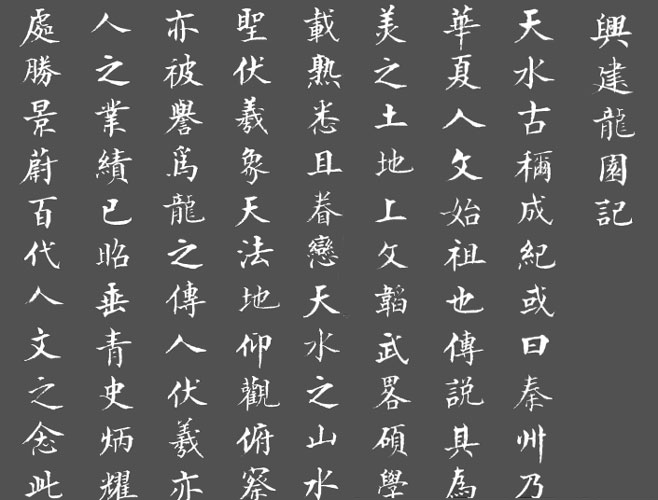 興建龍園記
天水古稱成紀或曰秦州乃
華夏人文始祖也傳説其為
美之土地上文韜武畧碩學
載熟悉且眷戀天水之山水
聖伏羲象天法地仰觀俯察
亦被譽爲龍之傳人伏羲亦
人之業績已昭垂青史炳耀
處勝景蔚百代人文之念此